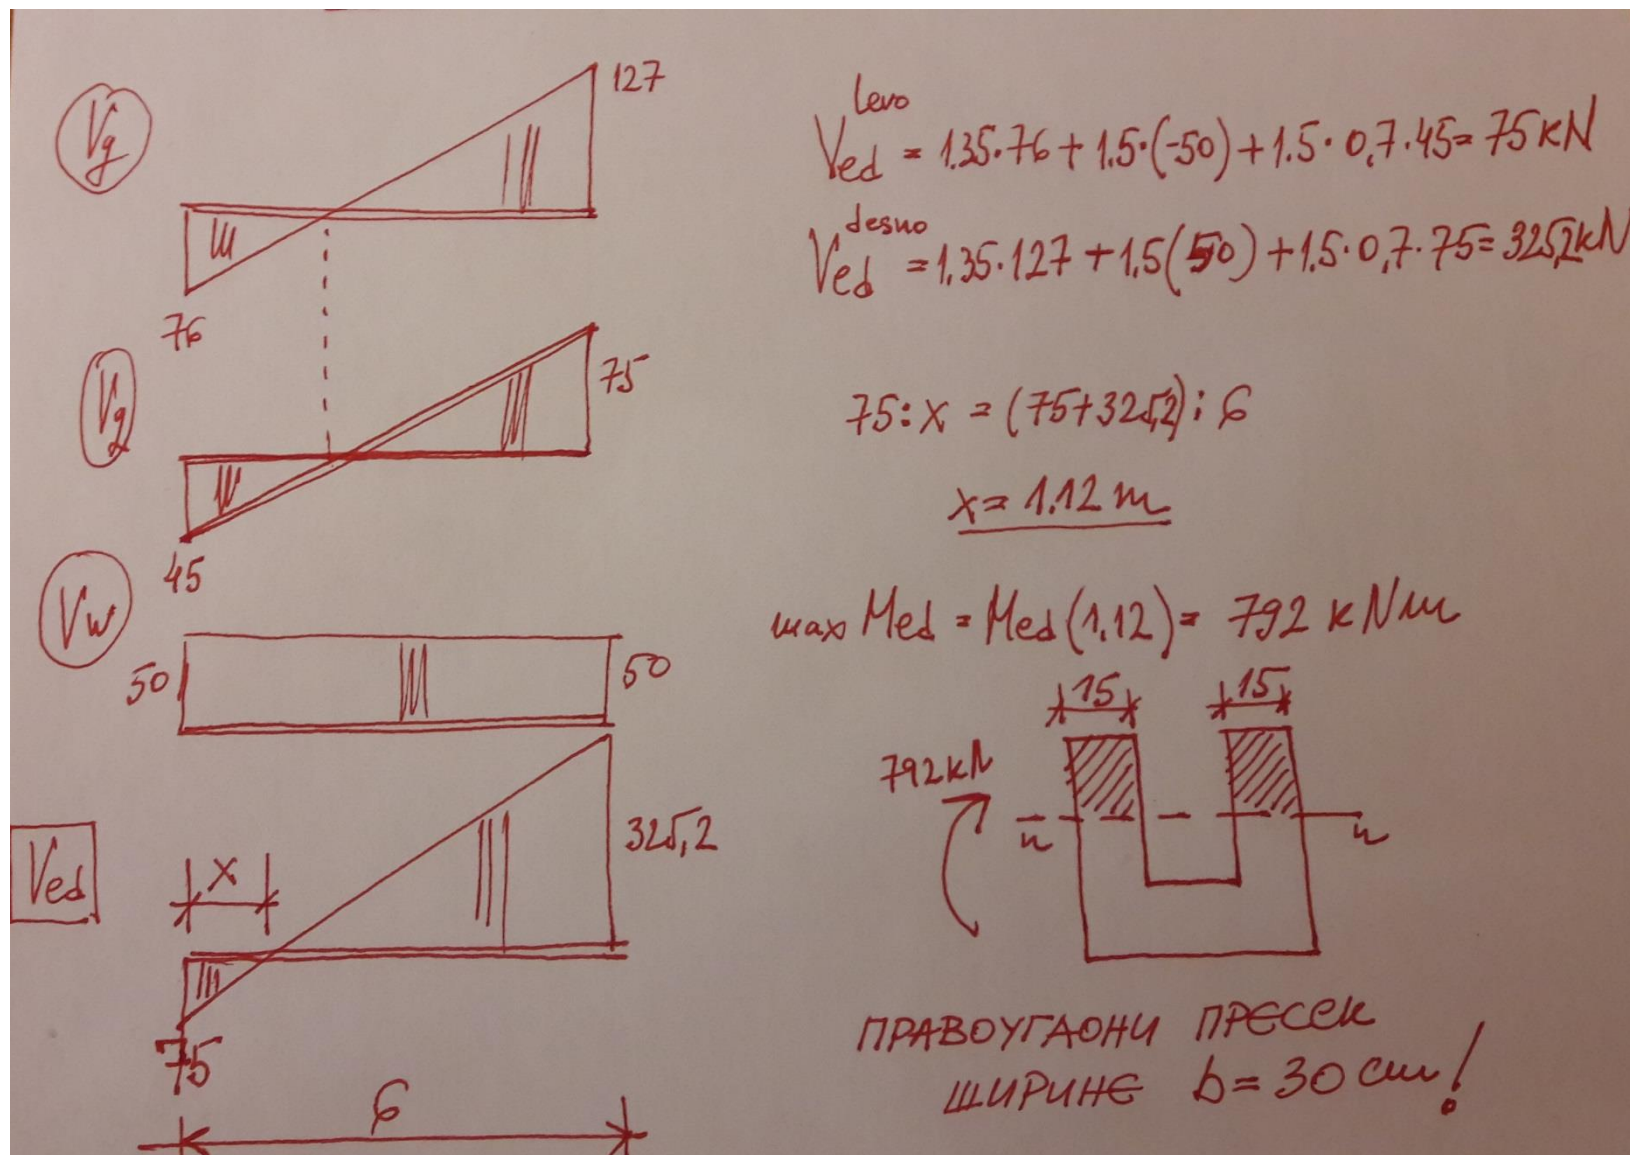 Vg
127
76
Vq
75
45
Vw
50
50
Ved
x
325,2
75
6
Ved levo = 1.35·76 + 1.5·(-50) + 1.5·0,7·45 = 75 kN
Ved desno = 1,35·127 + 1,5(50) + 1.5·0,7·75 = 325,2 kN
75:x = (75+325,2):6
x = 1.12 m
max Med = Med(1,12) = 792 kNm
15 15
792 kN
n n
ПРАВОУГАОНИ ПРЕСЕК
ШИРИНЕ b = 30 cm!